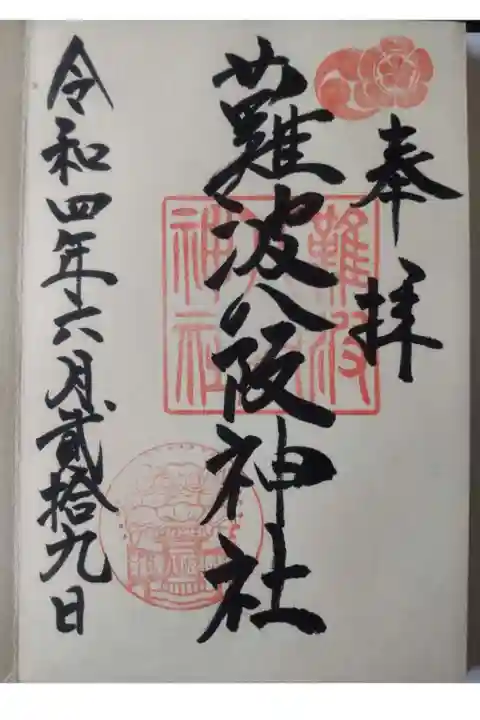 奉拝
難波八阪神社
令和四年六月貳拾九日
難波
神社